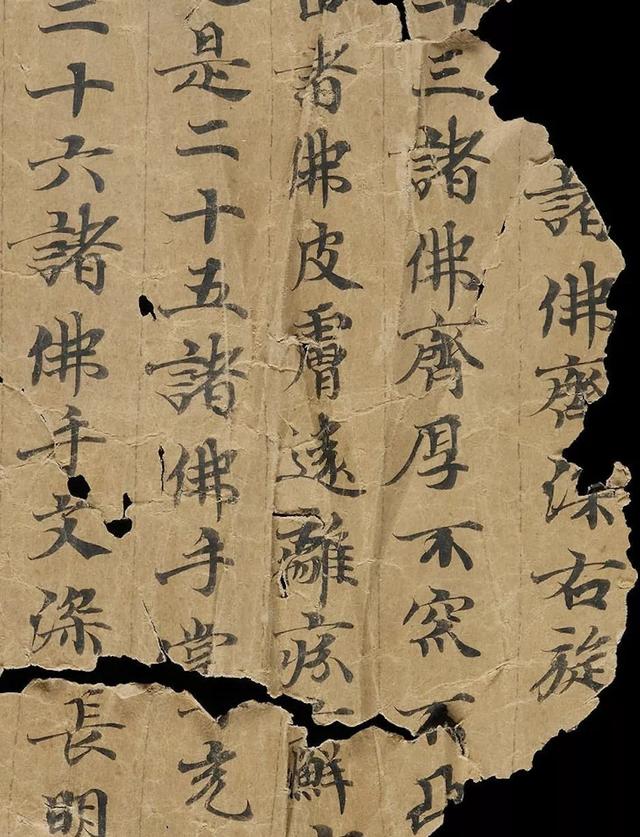 諸佛齊深右旋
三諸佛齊厚不窊不凸
諸佛皮膚遠離疥癬
是二十五諸佛手掌充
二十六諸佛手文深長明